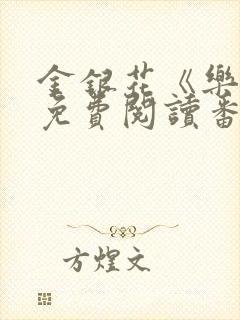 金銀花《樂
免費閱讀番
方煌文